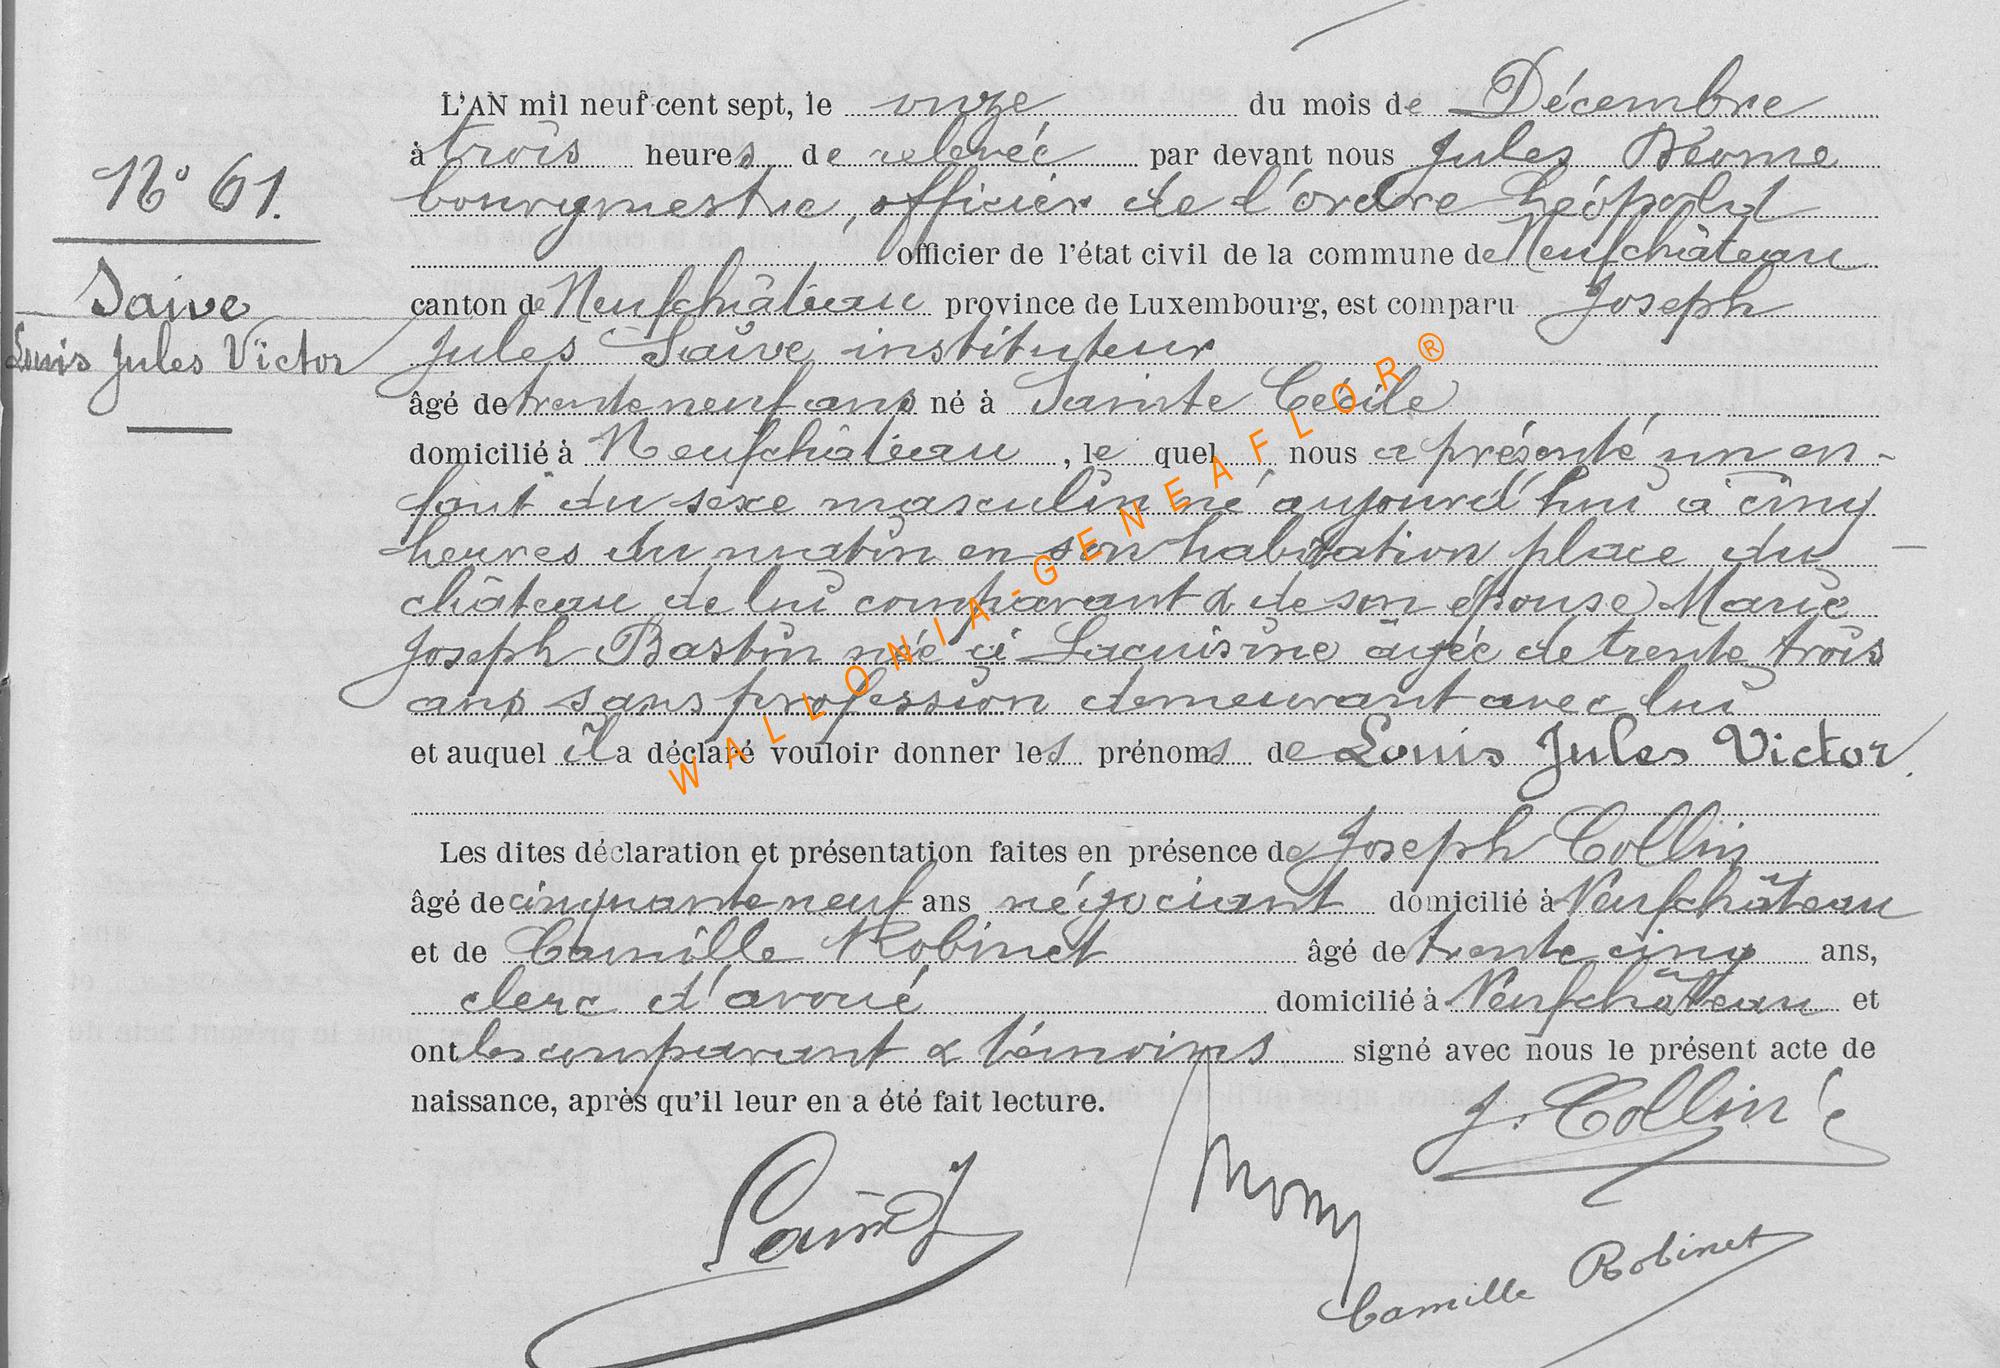 N° 61.
Saive
Louis Jules Victor
L'AN mil neuf cent sept, le onze du mois de Décembre
à trois heures de relevée par devant nous Jules
bourgmestre, officier de l'ordre Léopold
officier de l'état civil de la commune de Neufchâteau
canton de Neufchâteau province de Luxembourg, est comparu Joseph
Jules Saive instituteur
âgé de trente neuf ans né à Sainte Cécile
domicilié à Neufchâteau, le quel nous a présenté un en-
fant du sexe masculin né aujourd'hui à cinq
heures du matin en son habitation place du
château de lui comparant & de son épouse Marie
Joseph Bastin née à Lacuisine âgée de trente trois
ans sans profession demeurant avec lui
et auquel il a déclaré vouloir donner les prénoms de Louis Jules Victor.
Les dites déclaration et présentation faites en présence de Joseph Collin
âgé de cinquante neuf ans négociant domicilié à Neufchâteau
et de Camille Robinet âgé de trente cinq ans,
clerc d'avoué domicilié à Neufchâteau et
ont les comparant & témoins signé avec nous le présent acte de
naissance, après qu'il leur en a été fait lecture.
J. Collin
Camille Robinet
WALLONIA-GENEAFLOR®